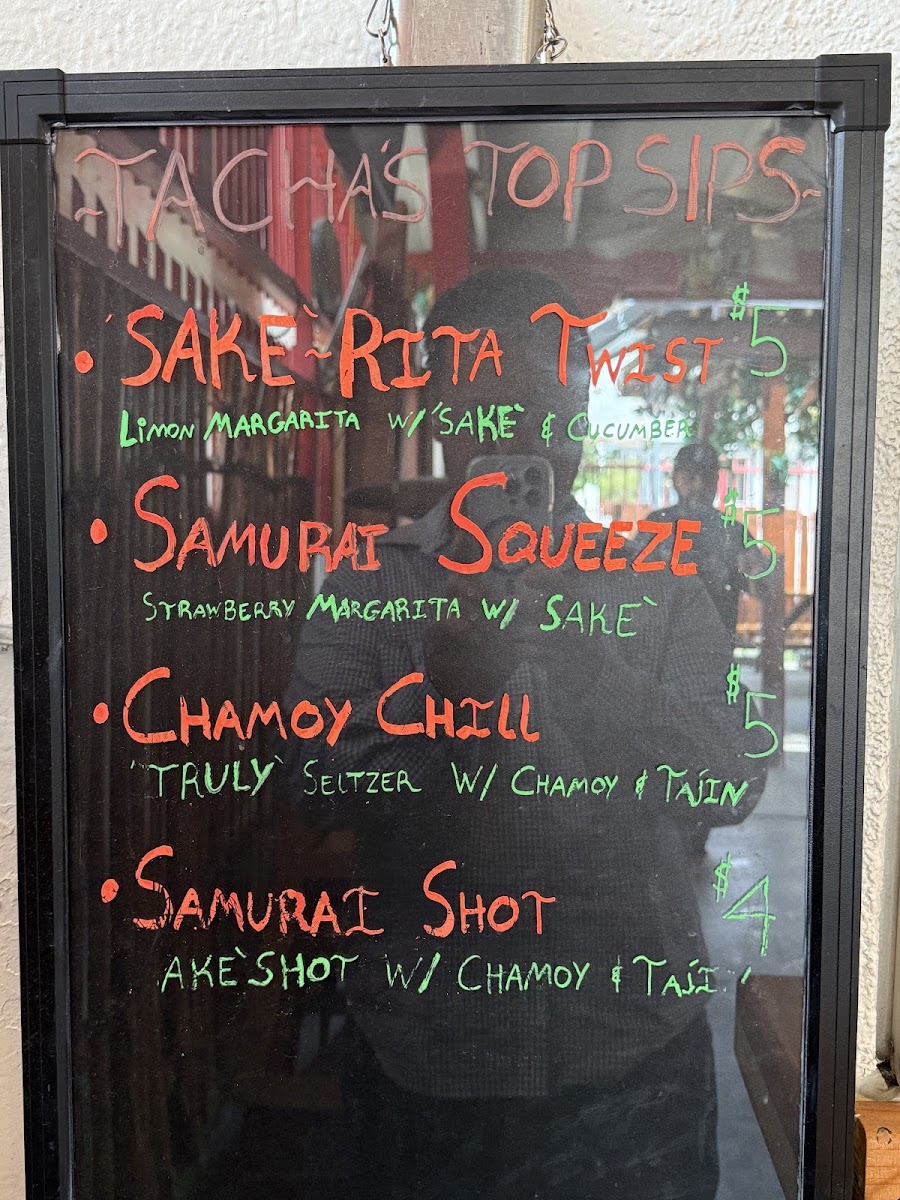 ~TACHA'S TOP SIPS~
• 'SAKE`~RITA TWIST $5
LiMON MARGARITA W/ 'SAKE` & CUCUMBER
• SAMURAI SQUEEZE $5
STRAWBERRY MARGARITA W/ SAKE`
• CHAMOY CHILL $5
"TRULY` SELTZER W/ CHAMOY & TAJIN
• SAMURAI SHOT $4
AKE`SHOT W/ CHAMOY & TAJI